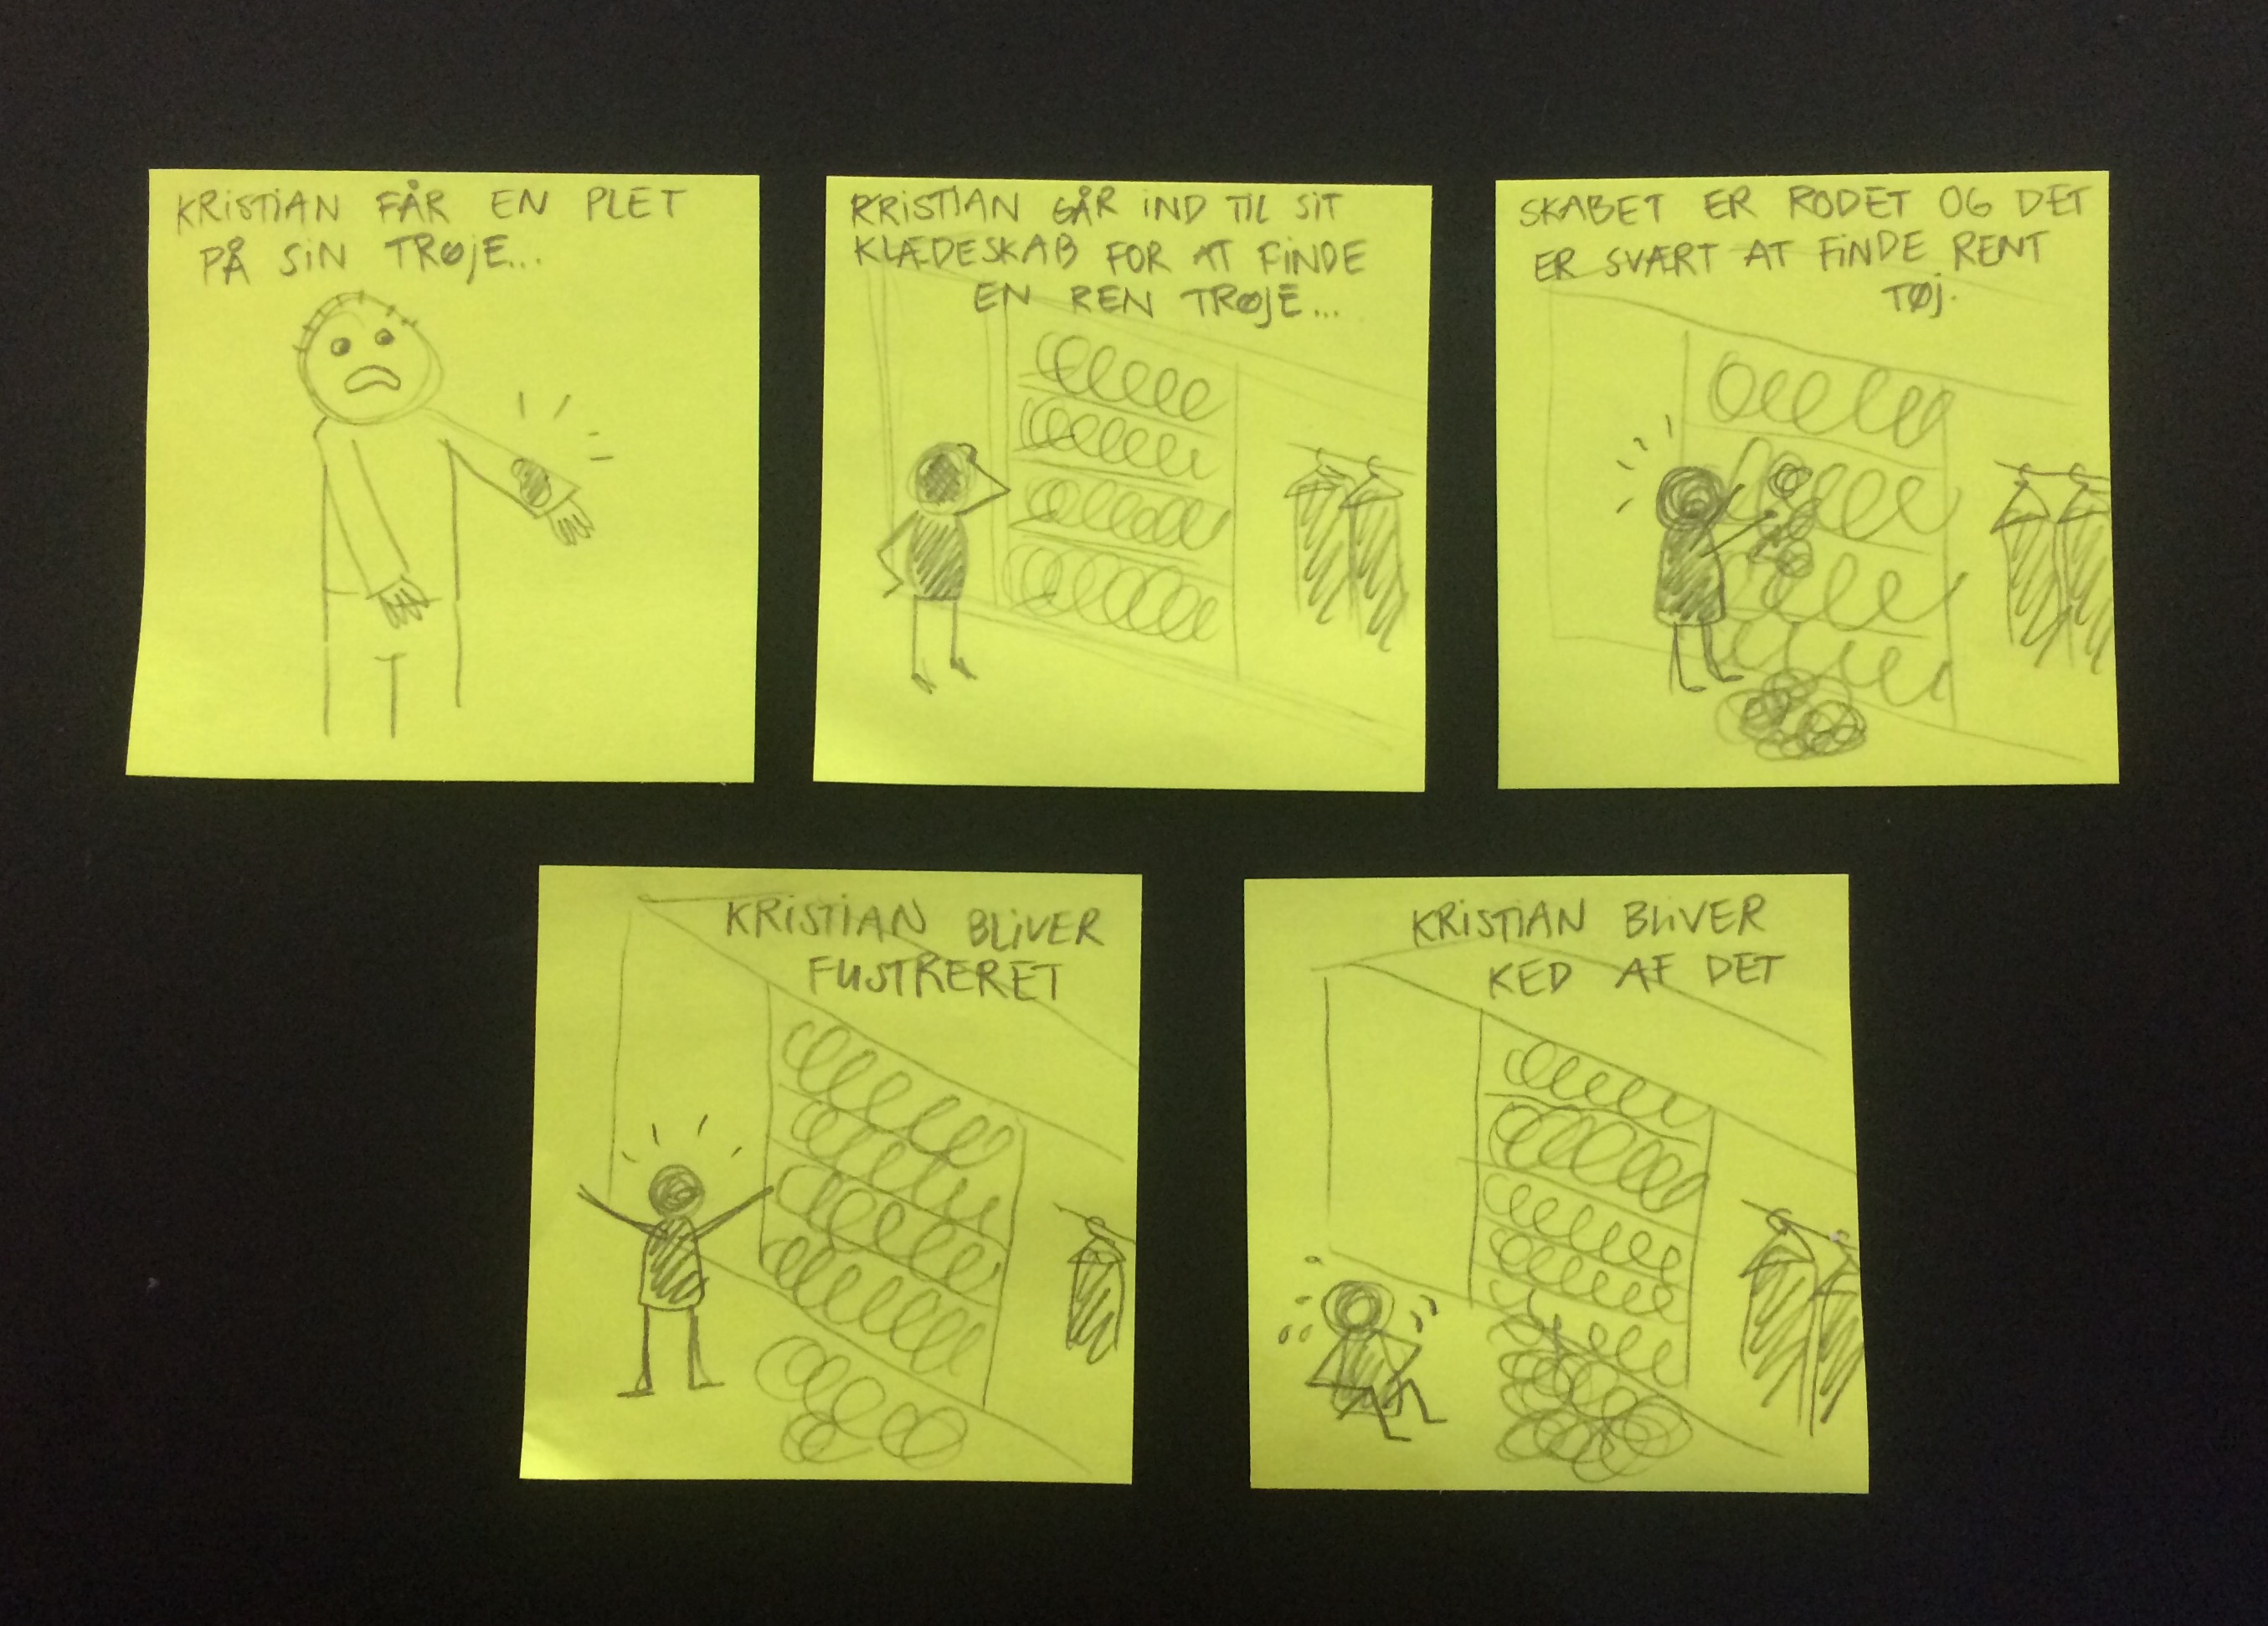 KRISTIAN FÅR EN PLET
PÅ SIN TRØJE...
KRISTIAN GÅR IND TIL SIT
KLÆDESKAB FOR AT FINDE
EN REN TRØJE...
SKABET ER RODET OG DET
ER SVÆRT AT FINDE RENT
TØJ.
KRISTIAN BLIVER
FUSTRERET
KRISTIAN BLIVER
KED AF DET